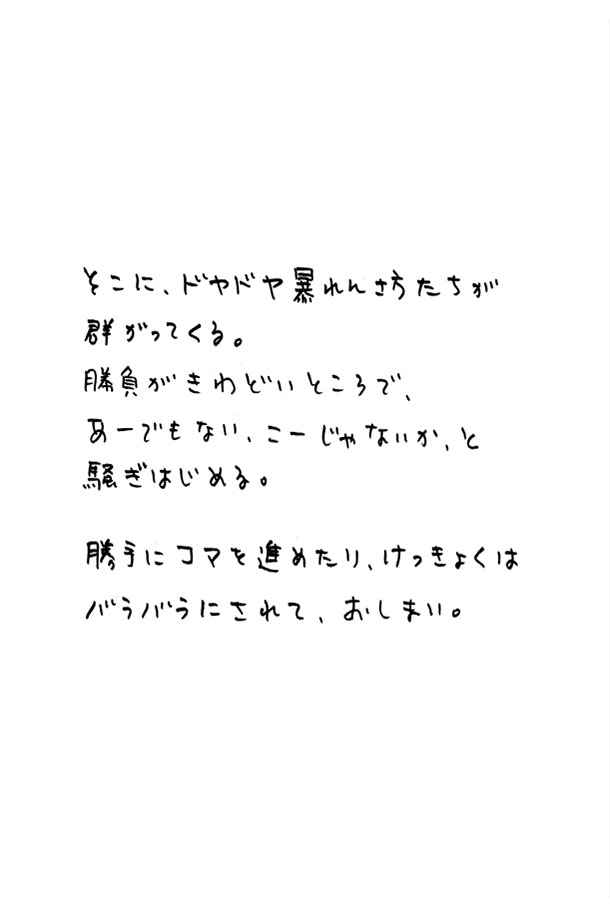 そこに、ドヤドヤ暴れん坊たちが
群がってくる。
勝負がきわどいところで、
あーでもない、こーじゃないか、と
騒ぎはじめる。
勝手にコマを進めたり、けっきょくは
バラバラにされて、おしまい。